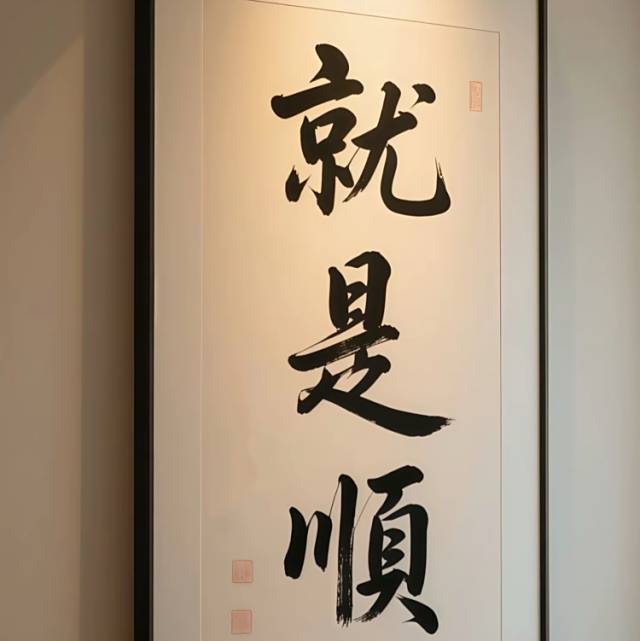 就是順